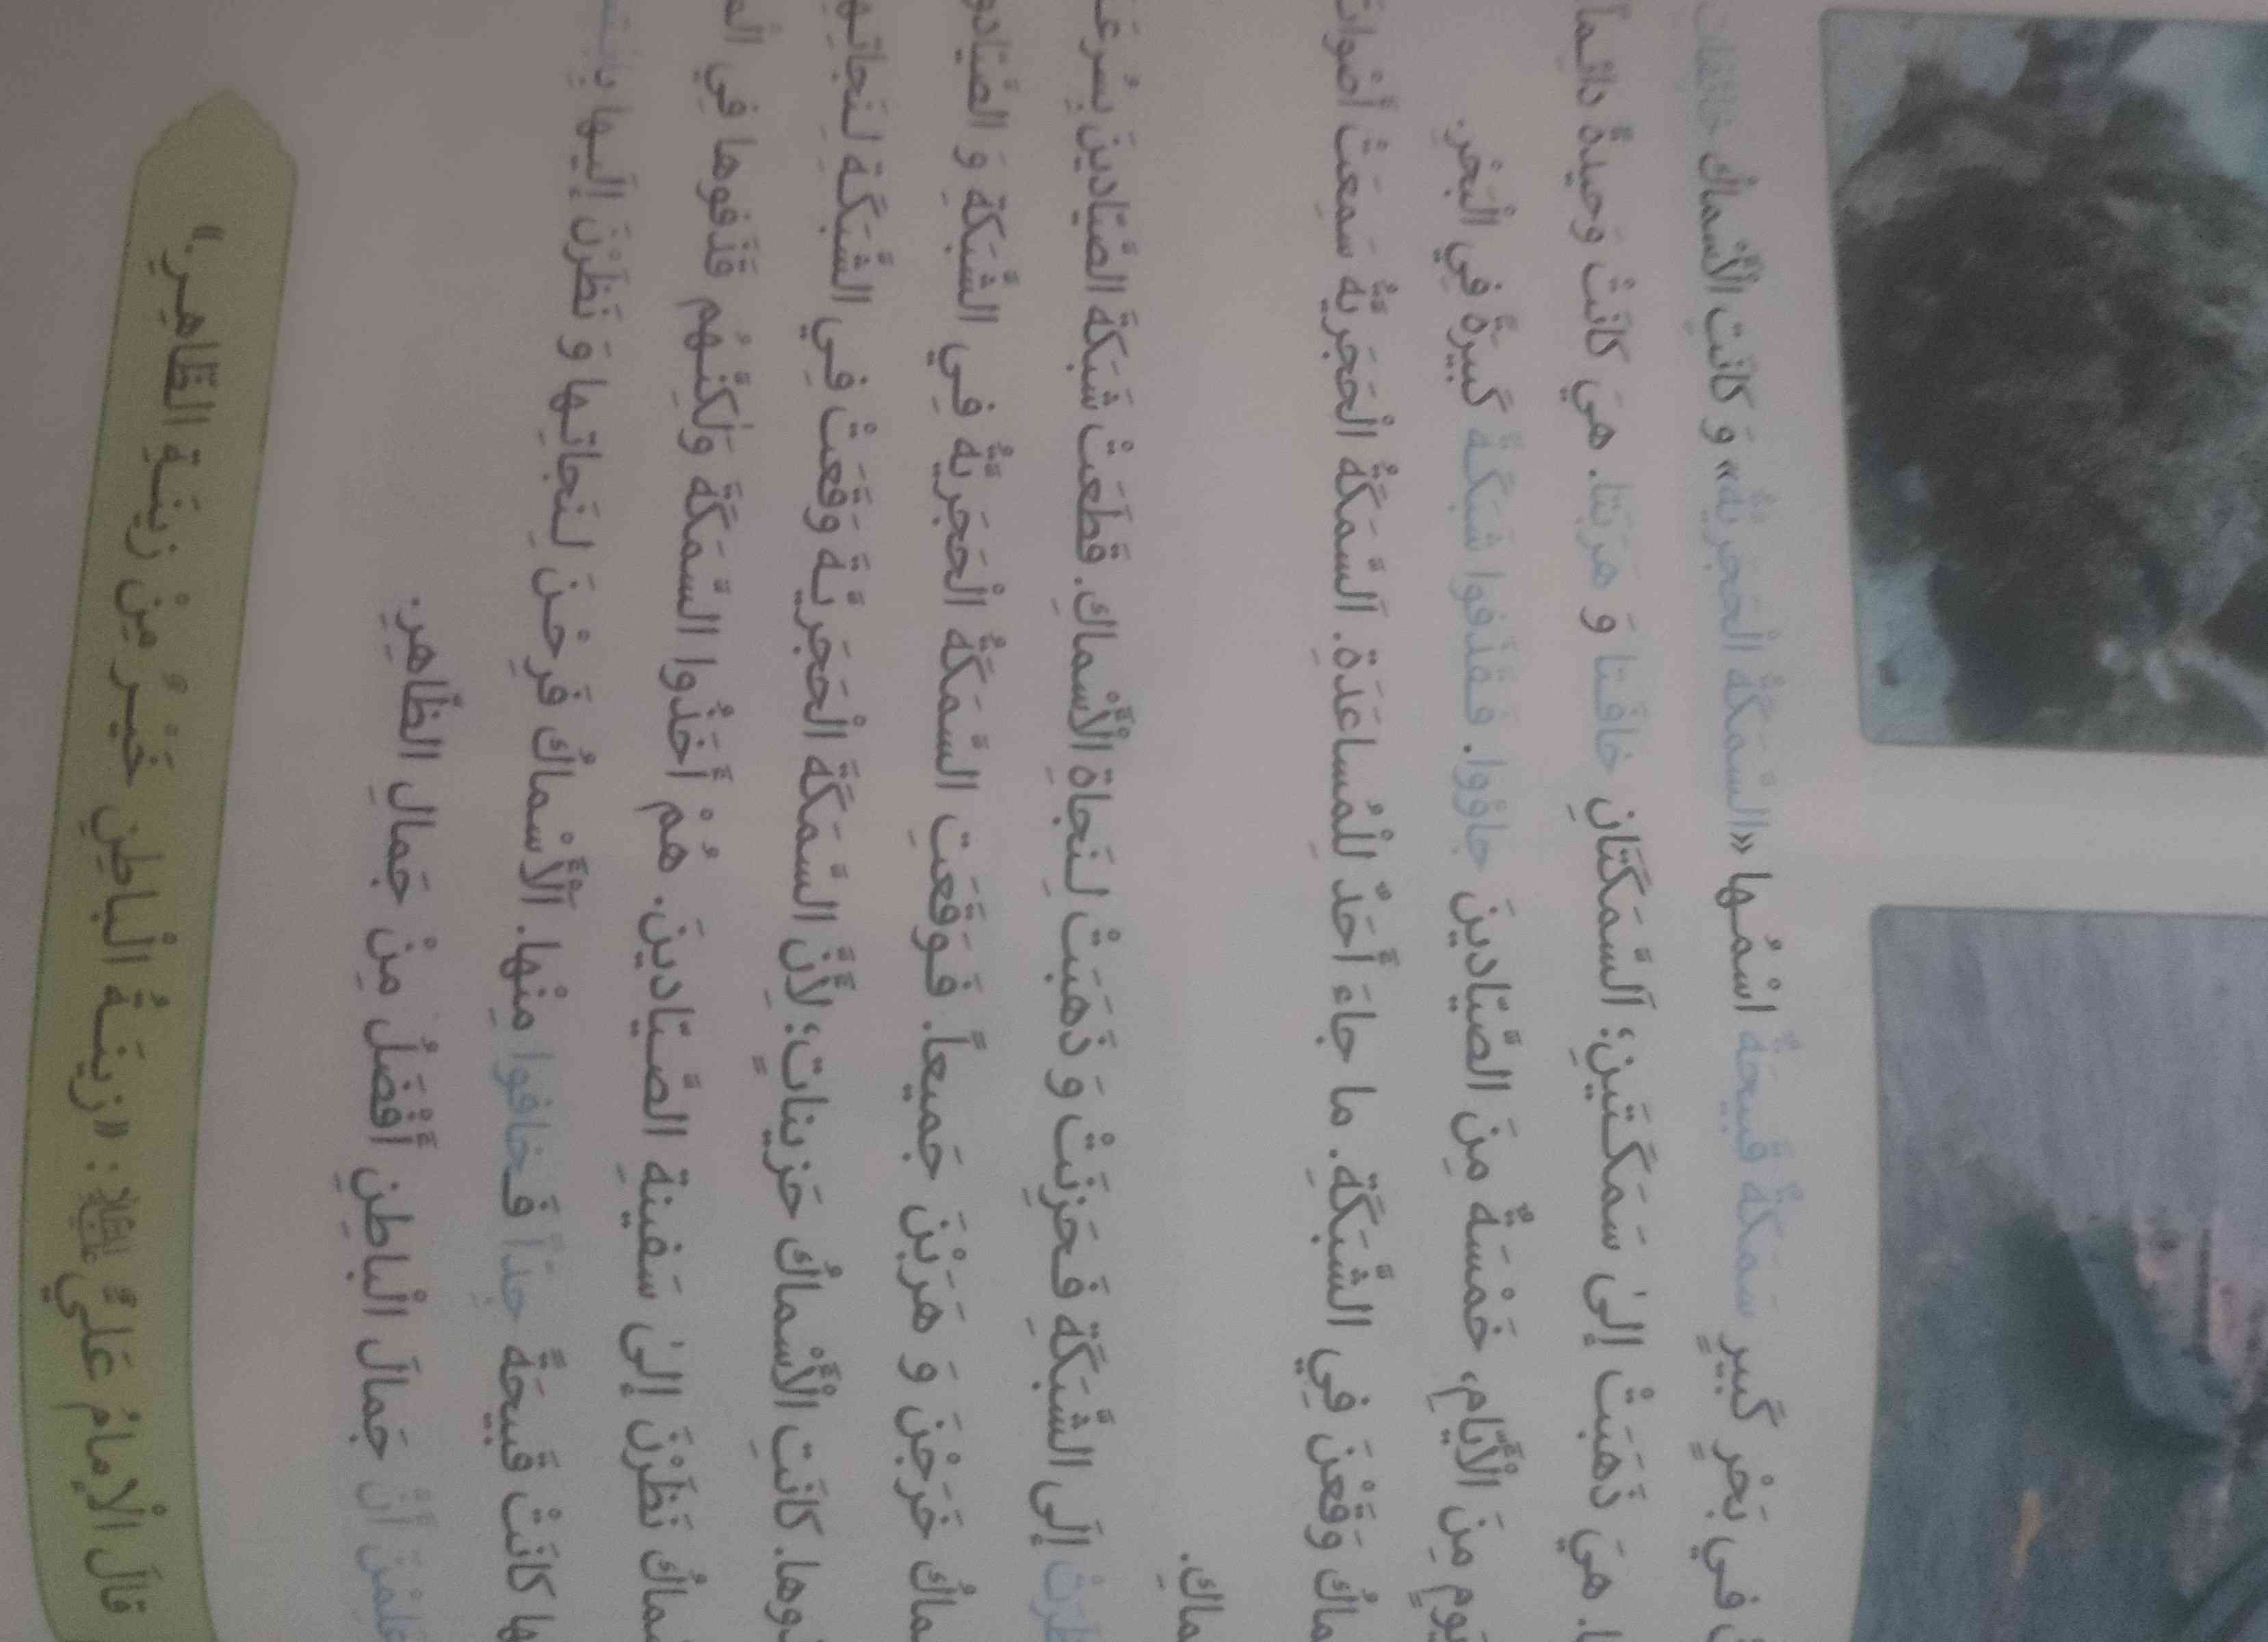 في بَحْرٍ كَبيرٍ سَمَكَةٌ قَبيحَةٌ اسْمُها «السَّمَكَةُ الْحَجَريَّةُ» وَ كانَتِ الْأَسْماكُ خائِفاتٍ
هيَ ذَهَبَتْ إلیٰ سَمَكَتَينِ؛ اَلسَّمَكَتَانِ خافَتا وَ هَرَبَتا. هيَ كانَتْ وَحيدةً دائِماً
يَومٍ مِنَ الْأَيّامِ، خَمْسَةٌ مِنَ الصَّيّادينَ جاؤوا. فَقَذَفوا شَبَكَةً كَبيرَةً فِي الْبَحْرِ.
وَقَعْنَ فِي الشَّبَكَةِ. ما جاءَ أَحَدٌ لِلْمُساعَدَةِ. اَلسَّمَكَةُ الْحَجَريَّةُ سَمِعَتْ أَصْواتَ
إلَی الشَّبَكَةِ فَحَزِنَتْ وَ ذَهَبَتْ لِنَجاةِ الْأَسْماكِ. قَطَعَتْ شَبَكَةَ الصَّيّادينَ بِسُرعَةٍ
خَرَجْنَ وَ هَرَبْنَ جَميعاً. فَوَقَعَتِ السَّمَكَةُ الْحَجَريَّةُ فِي الشَّبَكَةِ وَ الصَّيّادونَ
كانَتِ الْأَسْماكُ حَزيناتٍ؛ لِأَنَّ السَّمَكَةَ الْحَجَريَّةَ وَقَعَتْ فِي الشَّبَكَةِ لِنَجاتِهِنَّ
نَظَرْنَ إلیٰ سَفينَةِ الصَّيّادينَ. هُمْ أَخَذُوا السَّمَكَةَ وَلٰكِنَّهُم قَذَفوها فِي
كانَتْ قَبيحَةً جِدّاً فَخافوا مِنْها. اَلْأَسْماكُ فَرِحْنَ لِنَجاتِها وَ نَظَرْنَ إلَيها
عَلِمْنَ أَنَّ جَمالَ الْباطِنِ أَفْضَلُ مِنْ جَمالِ الظّاهِرِ.
قالَ الْإمامُ عَليٌّ: «زينَةُ الْباطِنِ خَيْرٌ مِنْ زينَةِ الظّاهِرِ.»